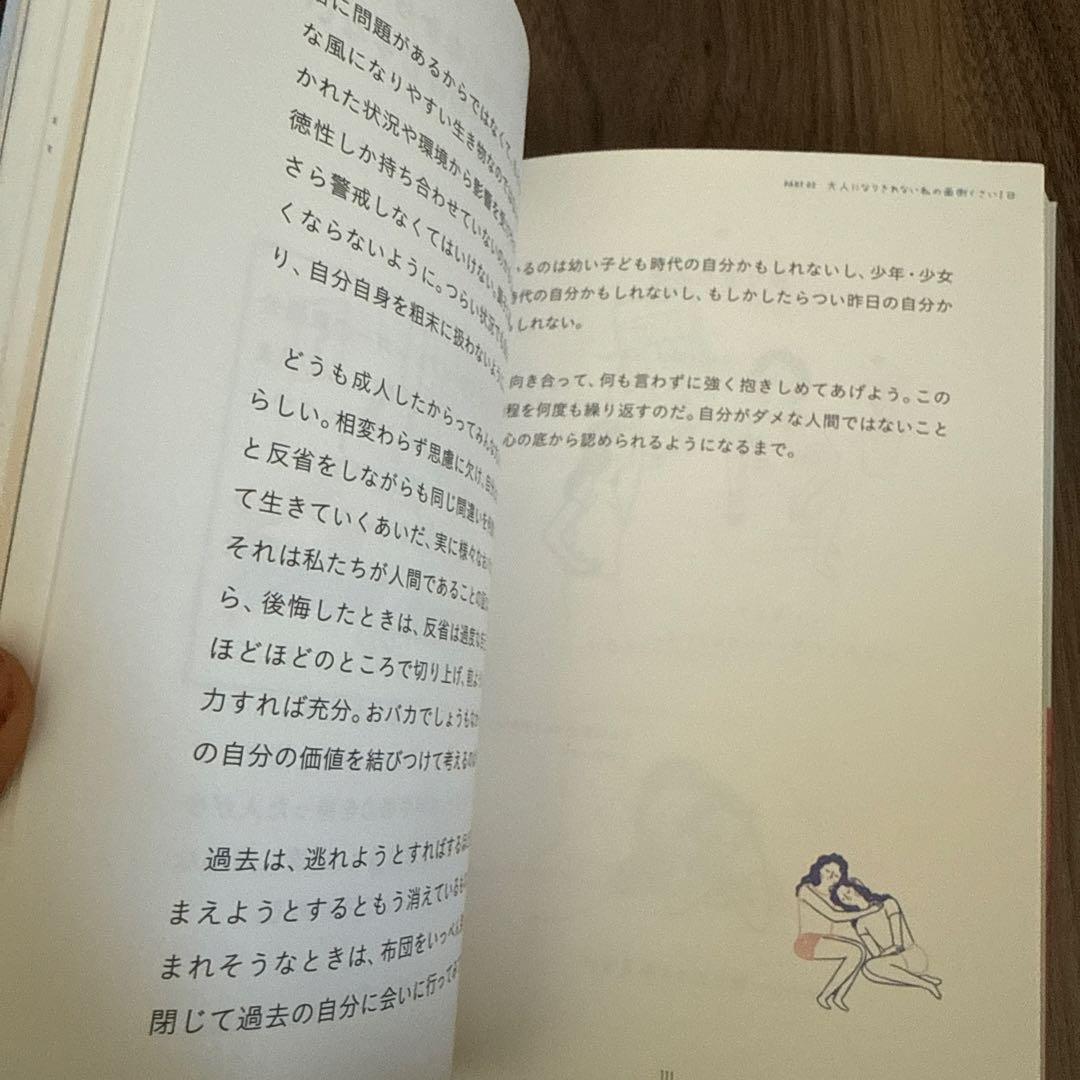 に問題があるからではなくて、
な風になりやすい生き物なので
かれた状況や環境から影響を
徳性しか持ち合わせていない
さら警戒しなくてはいけない。
くならないように。つらい状況でも
り、自分自身を粗末に扱わないよう
どうも成人したからってみんな
らしい。相変わらず思慮に欠け、自分
と反省をしながらも同じ間違いを
て生きていくあいだ、実に様々なお
それは私たちが人間であることの
ら、後悔したときは、反省は過度な
ほどほどのところで切り上げ、前より
力すれば充分。おバカでしょうもな
の自分の価値を結びつけて考えるの
過去は、逃れようとすればする
まえようとするともう消えている
まれそうなときは、布団をいっぺん
閉じて過去の自分に会いに行って
PART 02 大人になりきれない私の面倒くさい1日
るのは幼い子ども時代の自分かもしれないし、少年・少女
時代の自分かもしれないし、もしかしたらつい昨日の自分か
しれない。
向き合って、何も言わずに強く抱きしめてあげよう。この
程を何度も繰り返すのだ。自分がダメな人間ではないこと
心の底から認められるようになるまで。
111